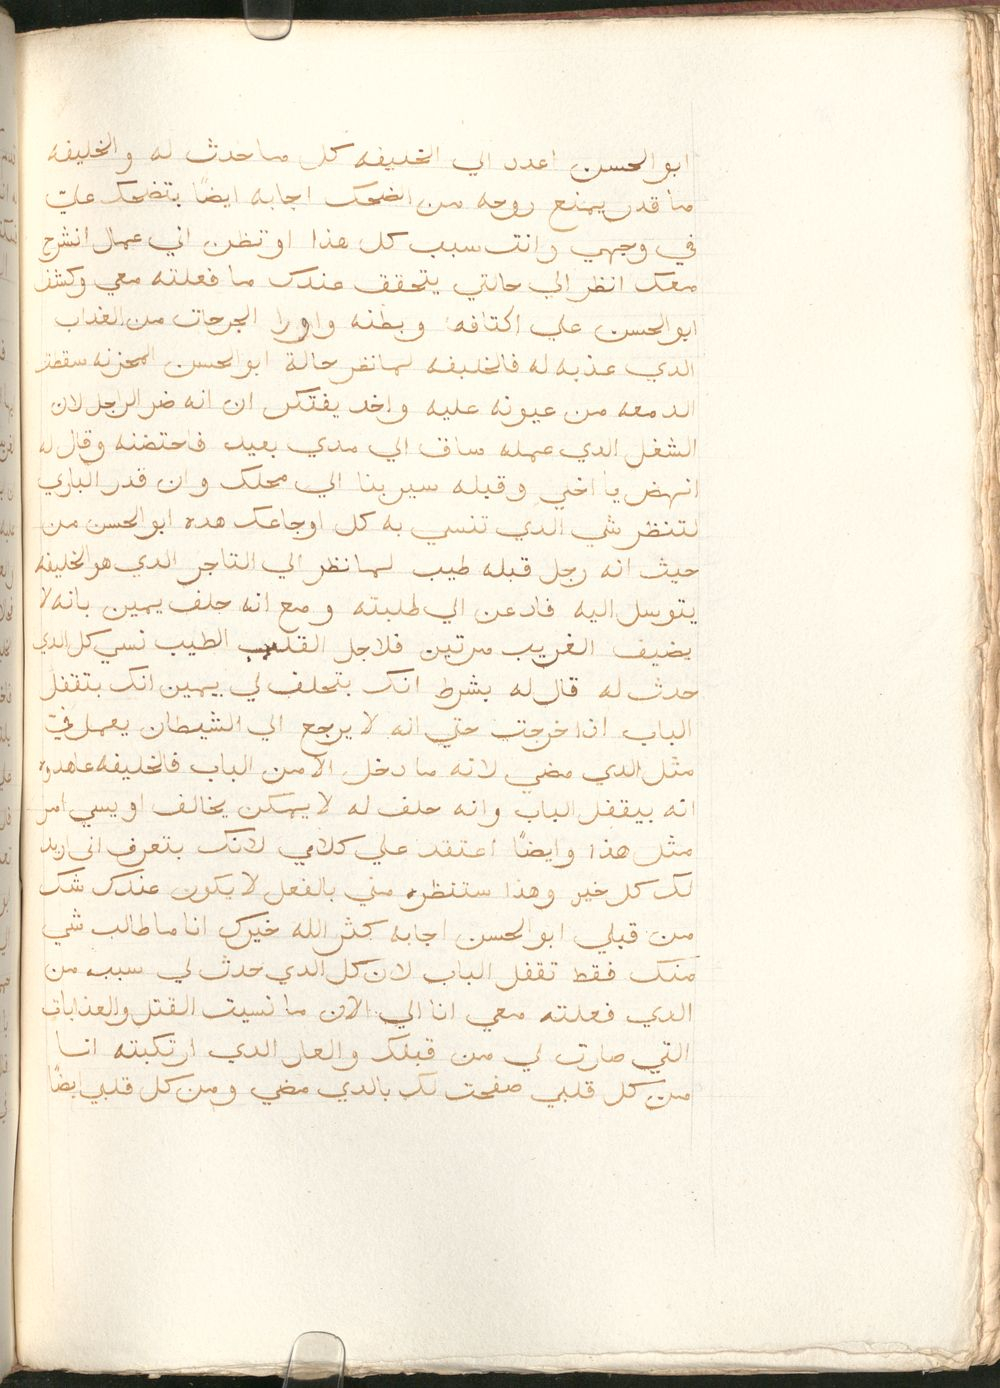 ابو الحسن اعدد الي الخليفه كل ما حدث له والخليفه
ما قدر يمنع روحه من الضحك اجابه ايضًا بتضحك عليّ
في وجهي وانت سبب كل هذا او تظن اني عمال انشرح
معك انظر الي حالتي يتحقق عندك ما فعلته معي وكشف
ابو الحسن علي اكتافه وبطنه واورا الجرحات من العذاب
الدي عذبه له فالخليفه لما نظر حالة ابو الحسن المحزنه سقطة
الدمعه من عيونه عليه واخد يفتكر ان انه ضر الراجل لان
الشغل الدي عمله ساق الي مدي بعيد فاحتضنه وقال له
انهض يا اخي وقبله سير بنا الي محلك وان قدر الباري
لتنظر شي الدي تنسي به كل اوجاعك هده ابو الحسن من
حيث انه رجل قبله طيب لما نظر الي التاجر الدي هو الخليفه
يتوسل اليه فادعن الي طلبته ومع انه حلف يمين بانه لا
يضيف الغريب مرتين فلاجل القلب الطيب نسي كل الدي
حدث له قال له بشرط انك بتحلف لي يمين انك بتقفل
الباب اذا خرجت حتي انه لا يرجع الي الشيطان يعمل فيّ
مثل الدي مضي لانه ما دخل الا من الباب فالخليفه عاهده
انه بيقفل الباب وانه حلف له لا يمكن يخالف او يسي امر
مثل هذا وايضًا اعتقد علي كلامي لانك بتعرف انى اريد
لك كل خير وهذا ستنظره مني بالفعل لا يكون عندك شك
من قبلي ابو الحسن اجابه كثر الله خيرك انا ما طالب شي
منك فقط تقفل الباب لان كل الدي حدث لي سبب من
الدي فعلته معي انا الي الان ما نسيت القتل والعذابات
التي صارت لي من قبلك والعار الدي ارتكبته انا
من كل قلبي صفحت لك بالدي مضي ومن كل قلبي ايضًا